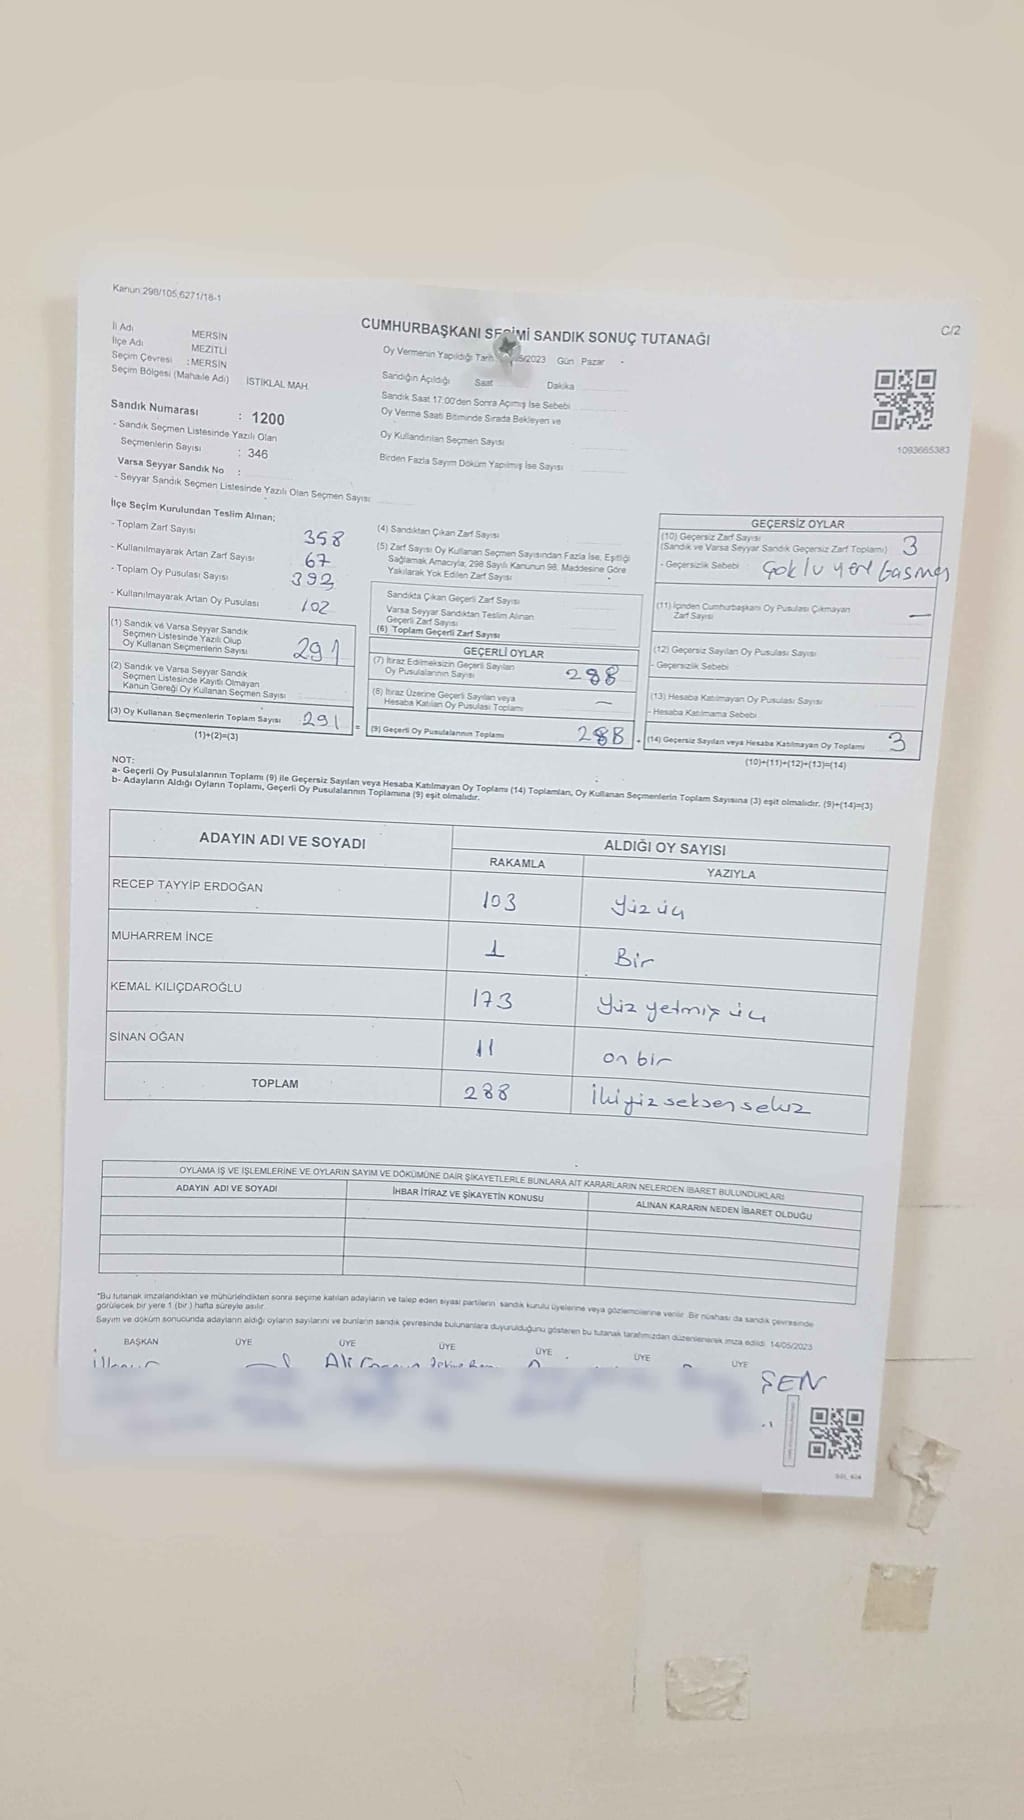 Kanun:298/105;6271/18-1
C/2
CUMHURBAŞKANI SEÇİMİ SANDIK SONUÇ TUTANAĞI
İl Adı MERSİN
İlçe Adı MEZİTLİ
Seçim Çevresi : MERSİN
Seçim Bölgesi (Mahalle Adı) İSTİKLAL MAH.
Sandık Numarası : 1200
- Sandık Seçmen Listesinde Yazılı Olan
Seçmenlerin Sayısı : 346
Varsa Seyyar Sandık No :
- Seyyar Sandık Seçmen Listesinde Yazılı Olan Seçmen Sayısı
Oy Vermenin Yapıldığı Tarih 5/2023 Gün Pazar
Sandığın Açıldığı Saat Dakika
Sandık Saat 17:00'den Sonra Açılmış İse Sebebi
Oy Verme Saati Bitiminde Sırada Bekleyen ve
Oy Kullandırılan Seçmen Sayısı
Birden Fazla Sayım Döküm Yapılmış İse Sayısı
1093665383
İlçe Seçim Kurulundan Teslim Alınan;
- Toplam Zarf Sayısı 358
- Kullanılmayarak Artan Zarf Sayısı 67
- Toplam Oy Pusulası Sayısı 392
- Kullanılmayarak Artan Oy Pusulası 102
(1) Sandık ve Varsa Seyyar Sandık
Seçmen Listesinde Yazılı Olup
Oy Kullanan Seçmenlerin Sayısı 291
(2) Sandık ve Varsa Seyyar Sandık
Seçmen Listesinde Kayıtlı Olmayan
Kanun Gereği Oy Kullanan Seçmen Sayısı
(3) Oy Kullanan Seçmenlerin Toplam Sayısı 291
(1)+(2)=(3)
(4) Sandıktan Çıkan Zarf Sayısı
(5) Zarf Sayısı Oy Kullanan Seçmen Sayısından Fazla İse, Eşitliği
Sağlamak Amacıyla; 298 Sayılı Kanunun 98. Maddesine Göre
Yakılarak Yok Edilen Zarf Sayısı
Sandıkta Çıkan Geçerli Zarf Sayısı
Varsa Seyyar Sandıktan Teslim Alınan
Geçerli Zarf Sayısı
(6) Toplam Geçerli Zarf Sayısı
GEÇERLİ OYLAR
(7) İtiraz Edilmeksizin Geçerli Sayılan
Oy Pusulalarının Sayısı 288
(8) İtiraz Üzerine Geçerli Sayılan veya
Hesaba Katılan Oy Pusulası Toplamı —
= (9) Geçerli Oy Pusulalarının Toplamı 288
GEÇERSİZ OYLAR
(10) Geçersiz Zarf Sayısı
(Sandık ve Varsa Seyyar Sandık Geçersiz Zarf Toplamı) 3
- Geçersizlik Sebebi Çoklu yere basması
(11) İçinden Cumhurbaşkanı Oy Pusulası Çıkmayan
Zarf Sayısı —
(12) Geçersiz Sayılan Oy Pusulası Sayısı
- Geçersizlik Sebebi
(13) Hesaba Katılmayan Oy Pusulası Sayısı
- Hesaba Katılmama Sebebi
+ (14) Geçersiz Sayılan veya Hesaba Katılmayan Oy Toplamı 3
(10)+(11)+(12)+(13)=(14)
NOT:
a- Geçerli Oy Pusulalarının Toplamı (9) ile Geçersiz Sayılan veya Hesaba Katılmayan Oy Toplamı (14) Toplamları, Oy Kullanan Seçmenlerin Toplam Sayısına (3) eşit olmalıdır. (9)+(14)=(3)
b- Adayların Aldığı Oyların Toplamı, Geçerli Oy Pusulalarının Toplamına (9) eşit olmalıdır.
ADAYIN ADI VE SOYADI ALDIĞI OY SAYISI
RAKAMLA YAZIYLA
RECEP TAYYİP ERDOĞAN 103 Yüz üç
MUHARREM İNCE 1 Bir
KEMAL KILIÇDAROĞLU 173 Yüz yetmiş üç
SİNAN OĞAN 11 on bir
TOPLAM 288 İkiyüz seksen sekiz
OYLAMA İŞ VE İŞLEMLERİNE VE OYLARIN SAYIM VE DÖKÜMÜNE DAİR ŞİKAYETLERLE BUNLARA AİT KARARLARIN NELERDEN İBARET BULUNDUKLARI
ADAYIN ADI VE SOYADI İHBAR İTİRAZ VE ŞİKAYETİN KONUSU ALINAN KARARIN NEDEN İBARET OLDUĞU
*Bu tutanak imzalandıktan ve mühürlendikten sonra seçime katılan adayların ve talep eden siyasi partilerin sandık kurulu üyelerine veya gözlemcilerine verilir. Bir nüshası da sandık çevresinde
görülecek bir yere 1 (bir) hafta süreyle asılır.
Sayım ve döküm sonucunda adayların aldığı oyların sayılarını ve bunların sandık çevresinde bulunanlara duyurulduğunu gösteren bu tutanak tarafımızdan düzenlenerek imza edildi. 14/05/2023
BAŞKAN ÜYE ÜYE ÜYE ÜYE ÜYE ÜYE
Ali
ŞEN